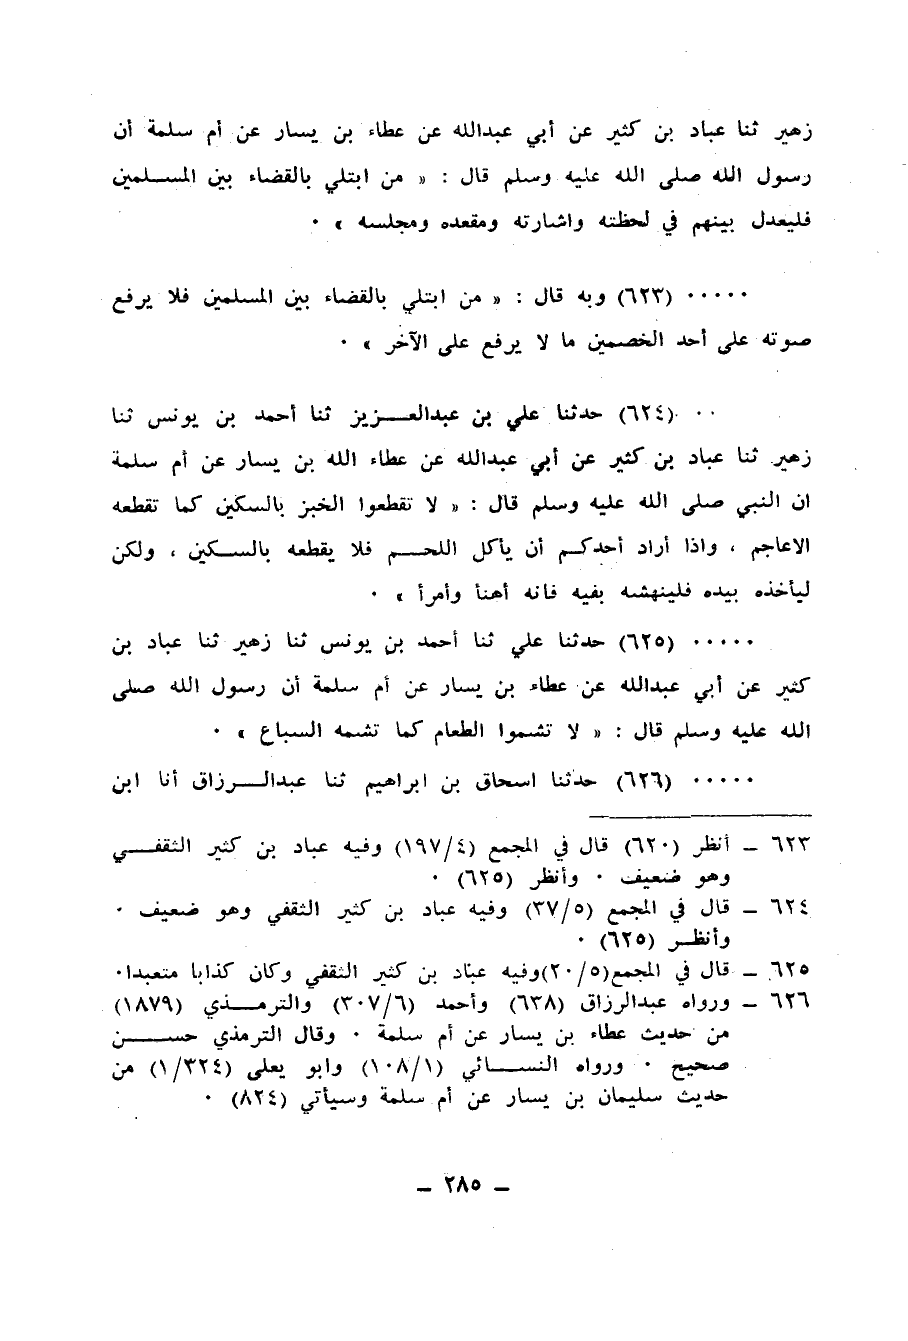 زهير ثنا عباد بن كثير عن أبي عبدالله عن عطاء بن يسار عن أم سلمة أن
رسول الله صلى الله عليه وسلم قال : « من ابتلي بالقضاء بين المسلمين
فليعدل بينهم في لحظته واشارته ومقعده ومجلسه » ٠
٠٠٠٠٠ (٦٢٣) وبه قال : « من ابتلي بالقضاء بين المسلمين فلا يرفع
صوته على أحد الخصمين ما لا يرفع على الآخر » ٠
٠٠ (٦٢٤) حدثنا علي بن عبدالعزيز ثنا أحمد بن يونس ثنا
زهير ثنا عباد بن كثير عن أبي عبدالله عن عطاء الله بن يسار عن أم سلمة
ان النبي صلى الله عليه وسلم قال : « لا تقطعوا الخبز بالسكين كما تقطعه
الاعاجم ، واذا أراد أحدكم أن يأكل اللحم فلا يقطعه بالسكين ، ولكن
ليأخذه بيده فلينهشه بفيه فانه أهنأ وأمرأ » ٠
٠٠٠٠٠ (٦٢٥) حدثنا علي ثنا أحمد بن يونس ثنا زهير ثنا عباد بن
كثير عن أبي عبدالله عن عطاء بن يسار عن أم سلمة أن رسول الله صلى
الله عليه وسلم قال : « لا تشموا الطعام كما تشمه السباع » ٠
٠٠٠٠٠ (٦٢٦) حدثنا اسحاق بن ابراهيم ثنا عبدالرزاق أنا ابن
٦٢٣ ـ أنظر (٦٢٠) قال في المجمع (١٩٧/٤) وفيه عباد بن كثير الثقفي
وهو ضعيف ٠ وأنظر (٦٢٥) ٠
٦٢٤ ـ قال في المجمع (٣٧/٥) وفيه عباد بن كثير الثقفي وهو ضعيف ٠
وأنظر (٦٢٥) ٠
٦٢٥ ـ قال في المجمع(٢٠/٥)وفيه عبّاد بن كثير الثقفي وكان كذابا متعبدا٠
٦٢٦ ـ ورواه عبدالرزاق (٦٣٨) وأحمد (٣٠٧/٦) والترمذي (١٨٧٩)
من حديث عطاء بن يسار عن أم سلمة ٠ وقال الترمذي حسن
صحيح ٠ ورواه النسائي (١٠٨/١) وابو يعلى (١/٣٢٤) من
حديث سليمان بن يسار عن أم سلمة وسيأتي (٨٢٤) ٠
ـ ٢٨٥ ـ